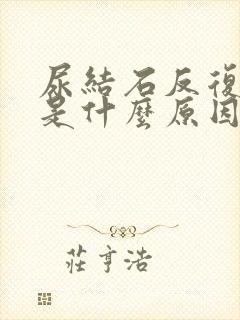 尿結石反復
是什麼原因
莊亨浩